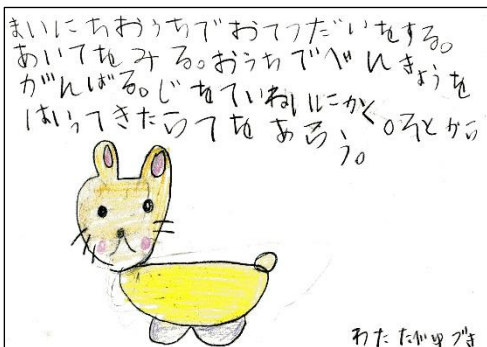 まいにちおうちでおてつだいをする。
あいてをみる。おうちでべんきょうを
がんばる。じをていねいにかく。そとから
はいってきたらてをあらう。